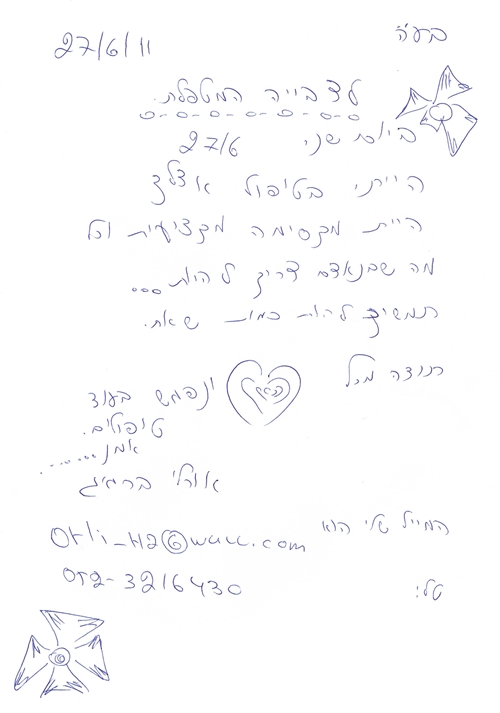 בעה
27/6/11
לצביה המטפלת.
ביום שני 27/6
הייתי בטיפול אצלך
היית מקסימה מקצועית וכל
מה שבנאדם צריך להיות...
תמשיכי להיות כמות שאת.
תודה מכל
ונפגש בעוד
טיפולים.
אמן.......
אורלי
המייל שלי הוא
טל:
052-3216430